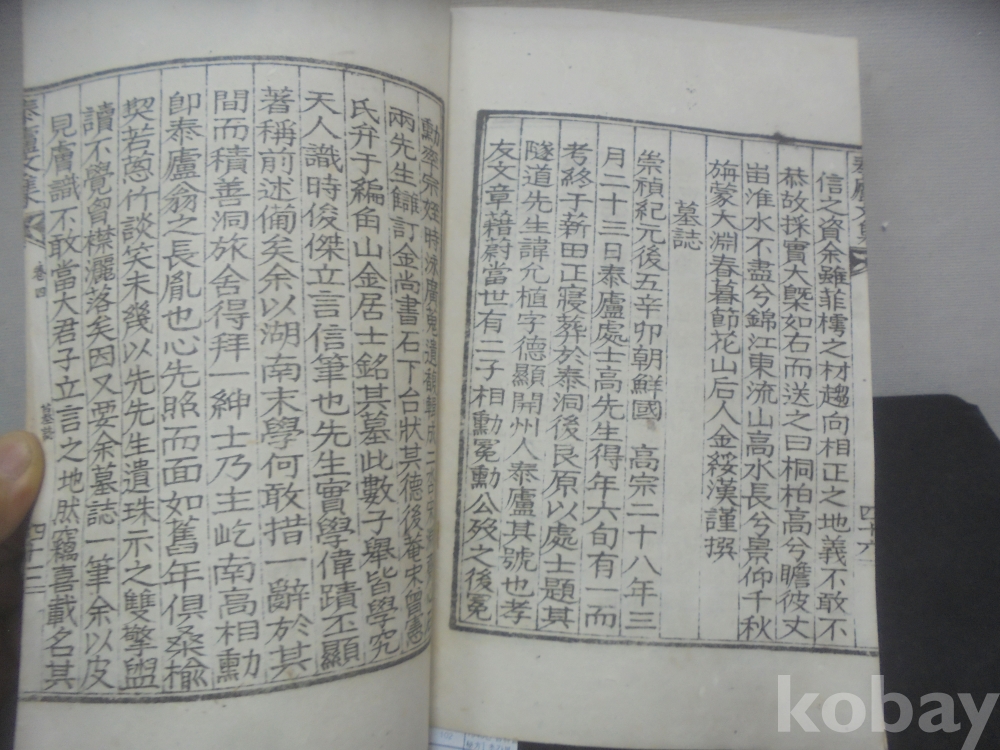 信之資余雖菲樗之材趨向相正之地義不敢不
恭故採實大槩如右而送之曰桐柏高兮瞻彼丈
出淮水不盡兮錦江東流山高水長兮景仰千秋
旃蒙大淵春暮節花山后人金綏漢謹撰
墓誌
崇禎紀元後五辛卯朝鮮國 高宗二十八年三
月二十三日泰廬處士高先生得年六旬有一而
考終于新田正寢葬於泰洞後艮原以處士題其
隧道先生諱允植字德顯開州人泰廬其號也孝
友文章藉蔚當世有二子相勳冕勳公歿之後冕
勳宗姪時洙廣蒐遺成二
兩先生讎訂金尚書石下台狀其德後菴宋曾憲
氏弁于編角山金居士銘其墓此數子擧皆學究
天人識時俊傑立言信筆也先生實學偉蹟丕顯
著稱前述備矣余以湖南末學何敢措一辭於其
間而積善洞旅舍得拜一紳士乃主屹南高相勳
卽泰廬翁之長胤也心先照而面如舊年俱桑榆
契若蔥竹談笑未幾以先先生遺珠示之雙擎盥
讀不覺胷襟灑落矣因又要余墓誌一筆余以皮
見膚識不敢當大君子立言之地然竊喜載名其
泰廬文集 卷四 墓誌 四十二